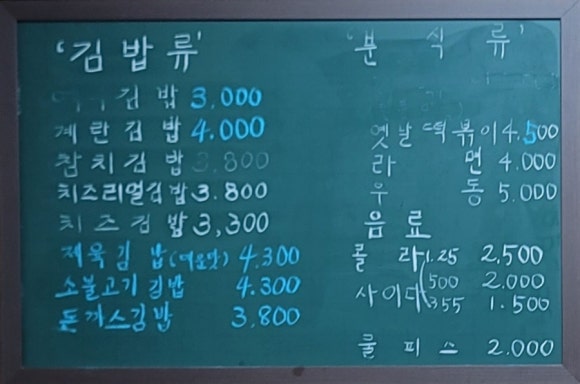 '김밥류'
김밥 3.000
계란김밥 4.000
참치김밥 3,800
치즈리얼김밥 3.800
치즈김밥 3,300
제육김밥(매운맛) 4.300
소불고기김밥 4.300
돈까스김밥 3,800
'분식류'
옛날떡볶이 4.500
라면 4.000
우동 5.000
음료
콜라 1.25 2,500
사이다 500 2.000
355 1.500
쿨피스 2.000